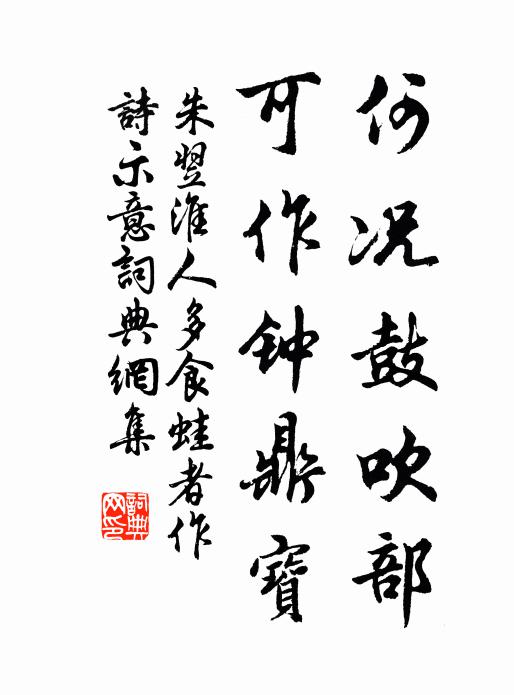 何况鼓吹部
可作钟鼎寶
朱翌淮人多食蛙者作
詩示意詞典網集
詞典网印